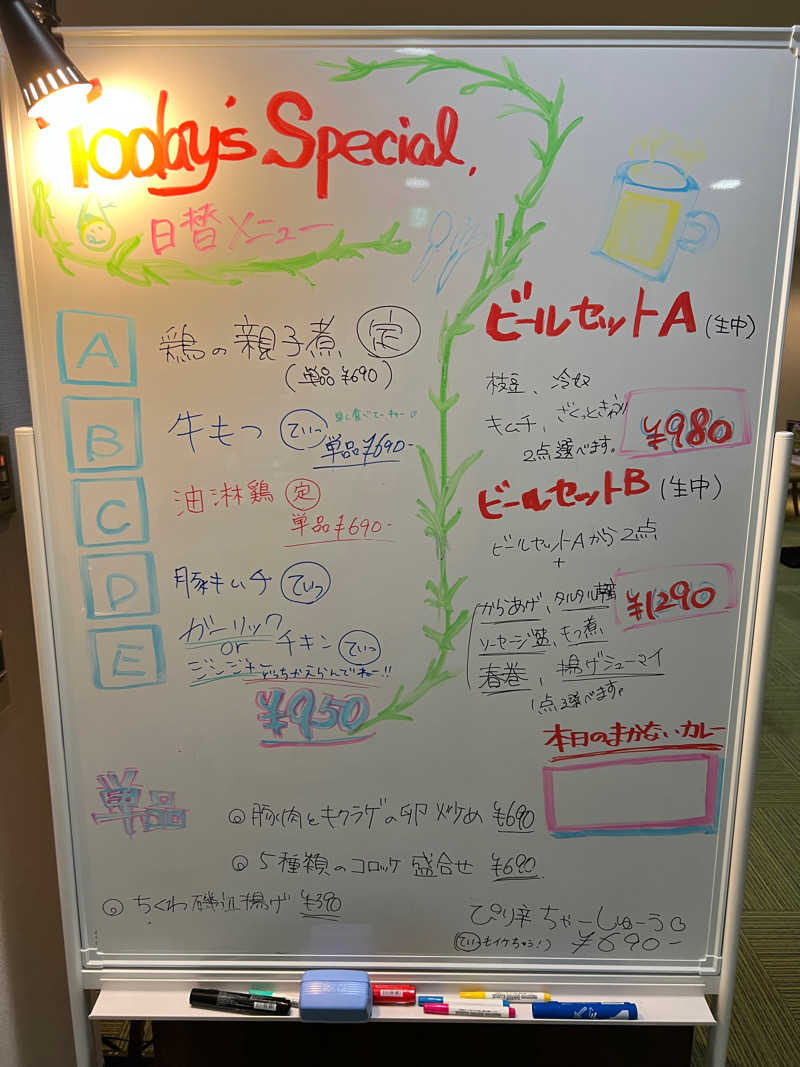 Today's Special.
日替メニュー
A 鶏の親子煮 定
(単品 ¥690)
B 牛もつ ていっ
単品 ¥690-
C 油淋鶏 定
単品 ¥690-
D 豚キムチ ていっ
E ガーリック
or チキン ていっ
ジンジャー どっちかえらんでねー!!
¥950
ビールセットA (生中)
枝豆、冷奴
キムチ、ざくっときゅうり
2点選べます。
¥980
ビールセットB (生中)
ビールセットAから2点
+
からあげ、タルタル
¥1290
ソーセージ盛、もつ煮、
春巻、揚げシューマイ
1点選べます。
本日のまかないカレー
単品
◎ 豚肉とキクラゲの卵炒め ¥690
◎ 5種類のコロッケ盛合せ ¥690
◎ ちくわ磯辺揚げ ¥390
ぴり辛ちゃーしゅー
(ていっもイケちゃう!) ¥690-